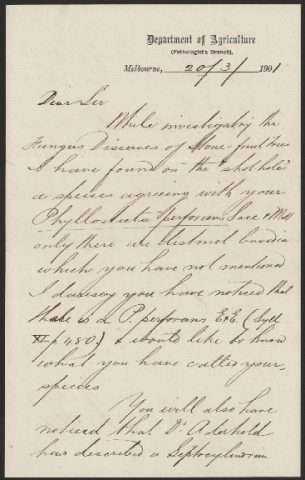 Department of Agriculture
(Pathologist's Branch),
Melbourne, 20/3/ 1901
Dear Sir
While investigating the
Fungus Diseases of Stone-fruit trees
I have found on the "shot hole"
a species agreeing with your
Phyllosticta perforans Sacc & Mall
only there are distinct basidia
which you have not mentioned
I daresay you have noticed that
there is a P. perforans E&E (Syll
XI p 480.) & would like to know
what you have called your
species
You will also have
noticed that Dr Aderhold
has described a Septocylindrium